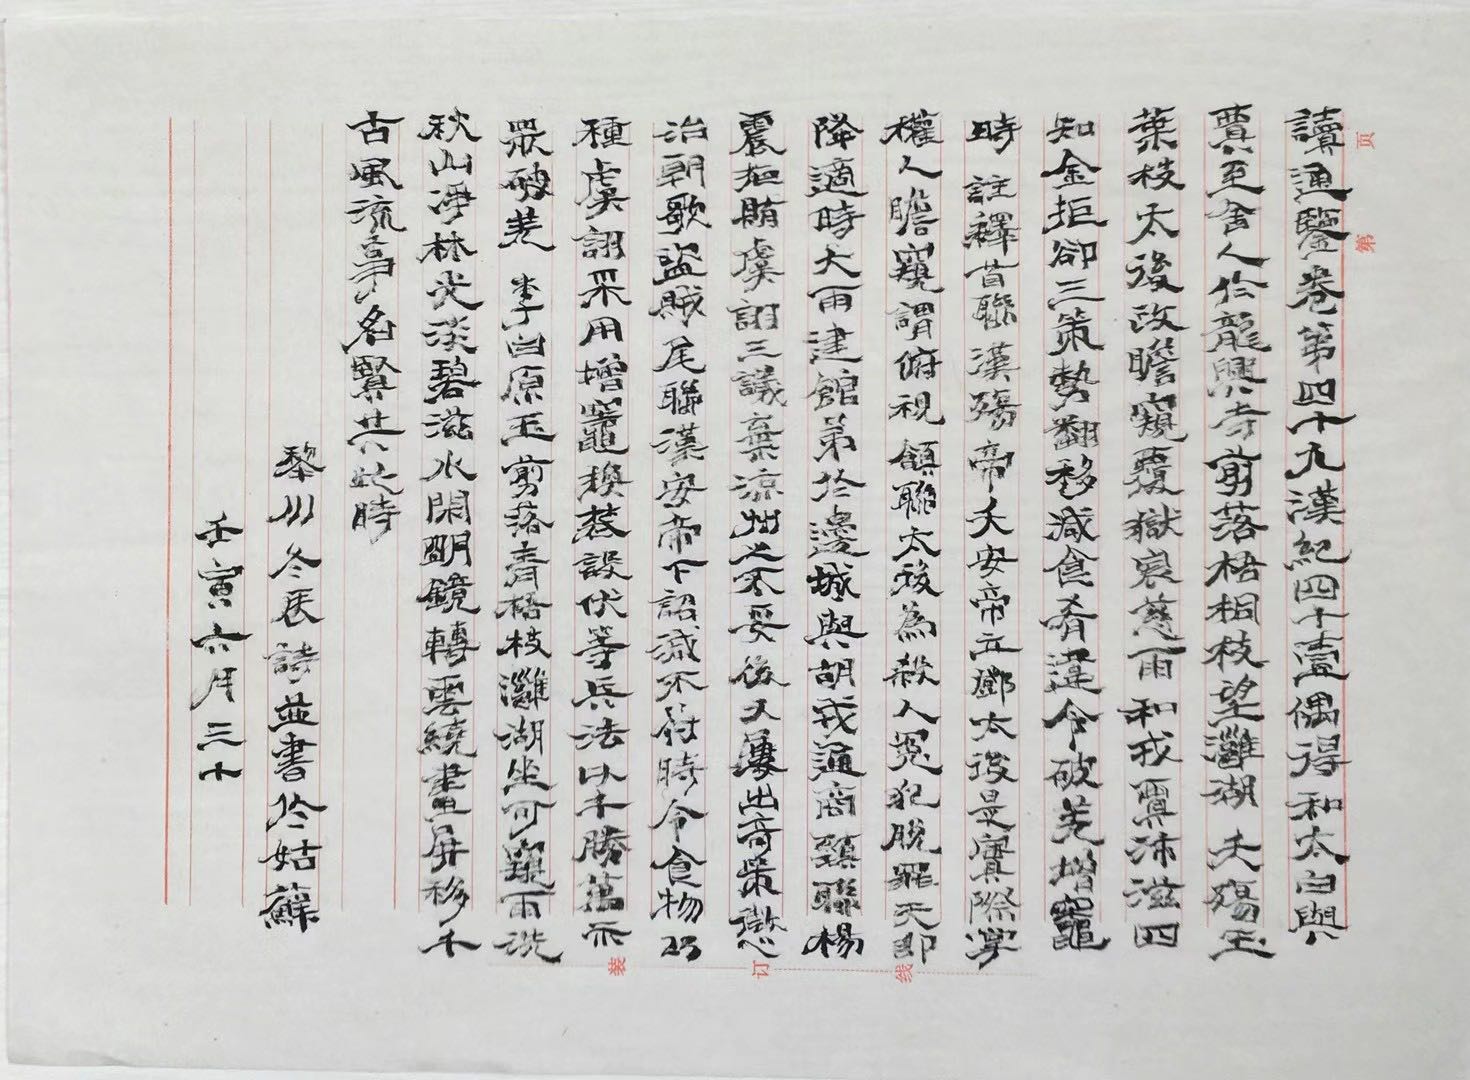 讀通鑒卷第四十九漢紀四十壹偶得和太白與
賈至舍人於龍興寺剪落梧桐枝望灉湖 夭殤玉
葉枝太後改瞻窺覆獄哀慈雨和戎霣沛滋四
知金拒卻三策勢翻移減食肴違令破羌增竈
時 註釋首聯漢殤帝夭安帝立鄧太後是實際掌
權人瞻窺謂俯視 頷聯太後為殺人冤犯脫罪天即
降適時大雨建館第於邊城與胡戎通商頸聯楊
震拒賄虞詡三議棄涼州之不妥後又屢出奇策徵
治朝歌盜賊尾聯漢安帝下詔減不符時令食物
種虞詡采用增竈換裝設伏等兵法以千勝萬而
眾破羌 李白原玉剪落青梧枝灉湖坐可窺雨洗
秋山淨林光淡碧滋水閑明鏡轉雲繞畫屏移千
古風流事名賢共此時
黎川冬辰詩並書於姑蘇
壬寅六月三十
页
第
装 订 线